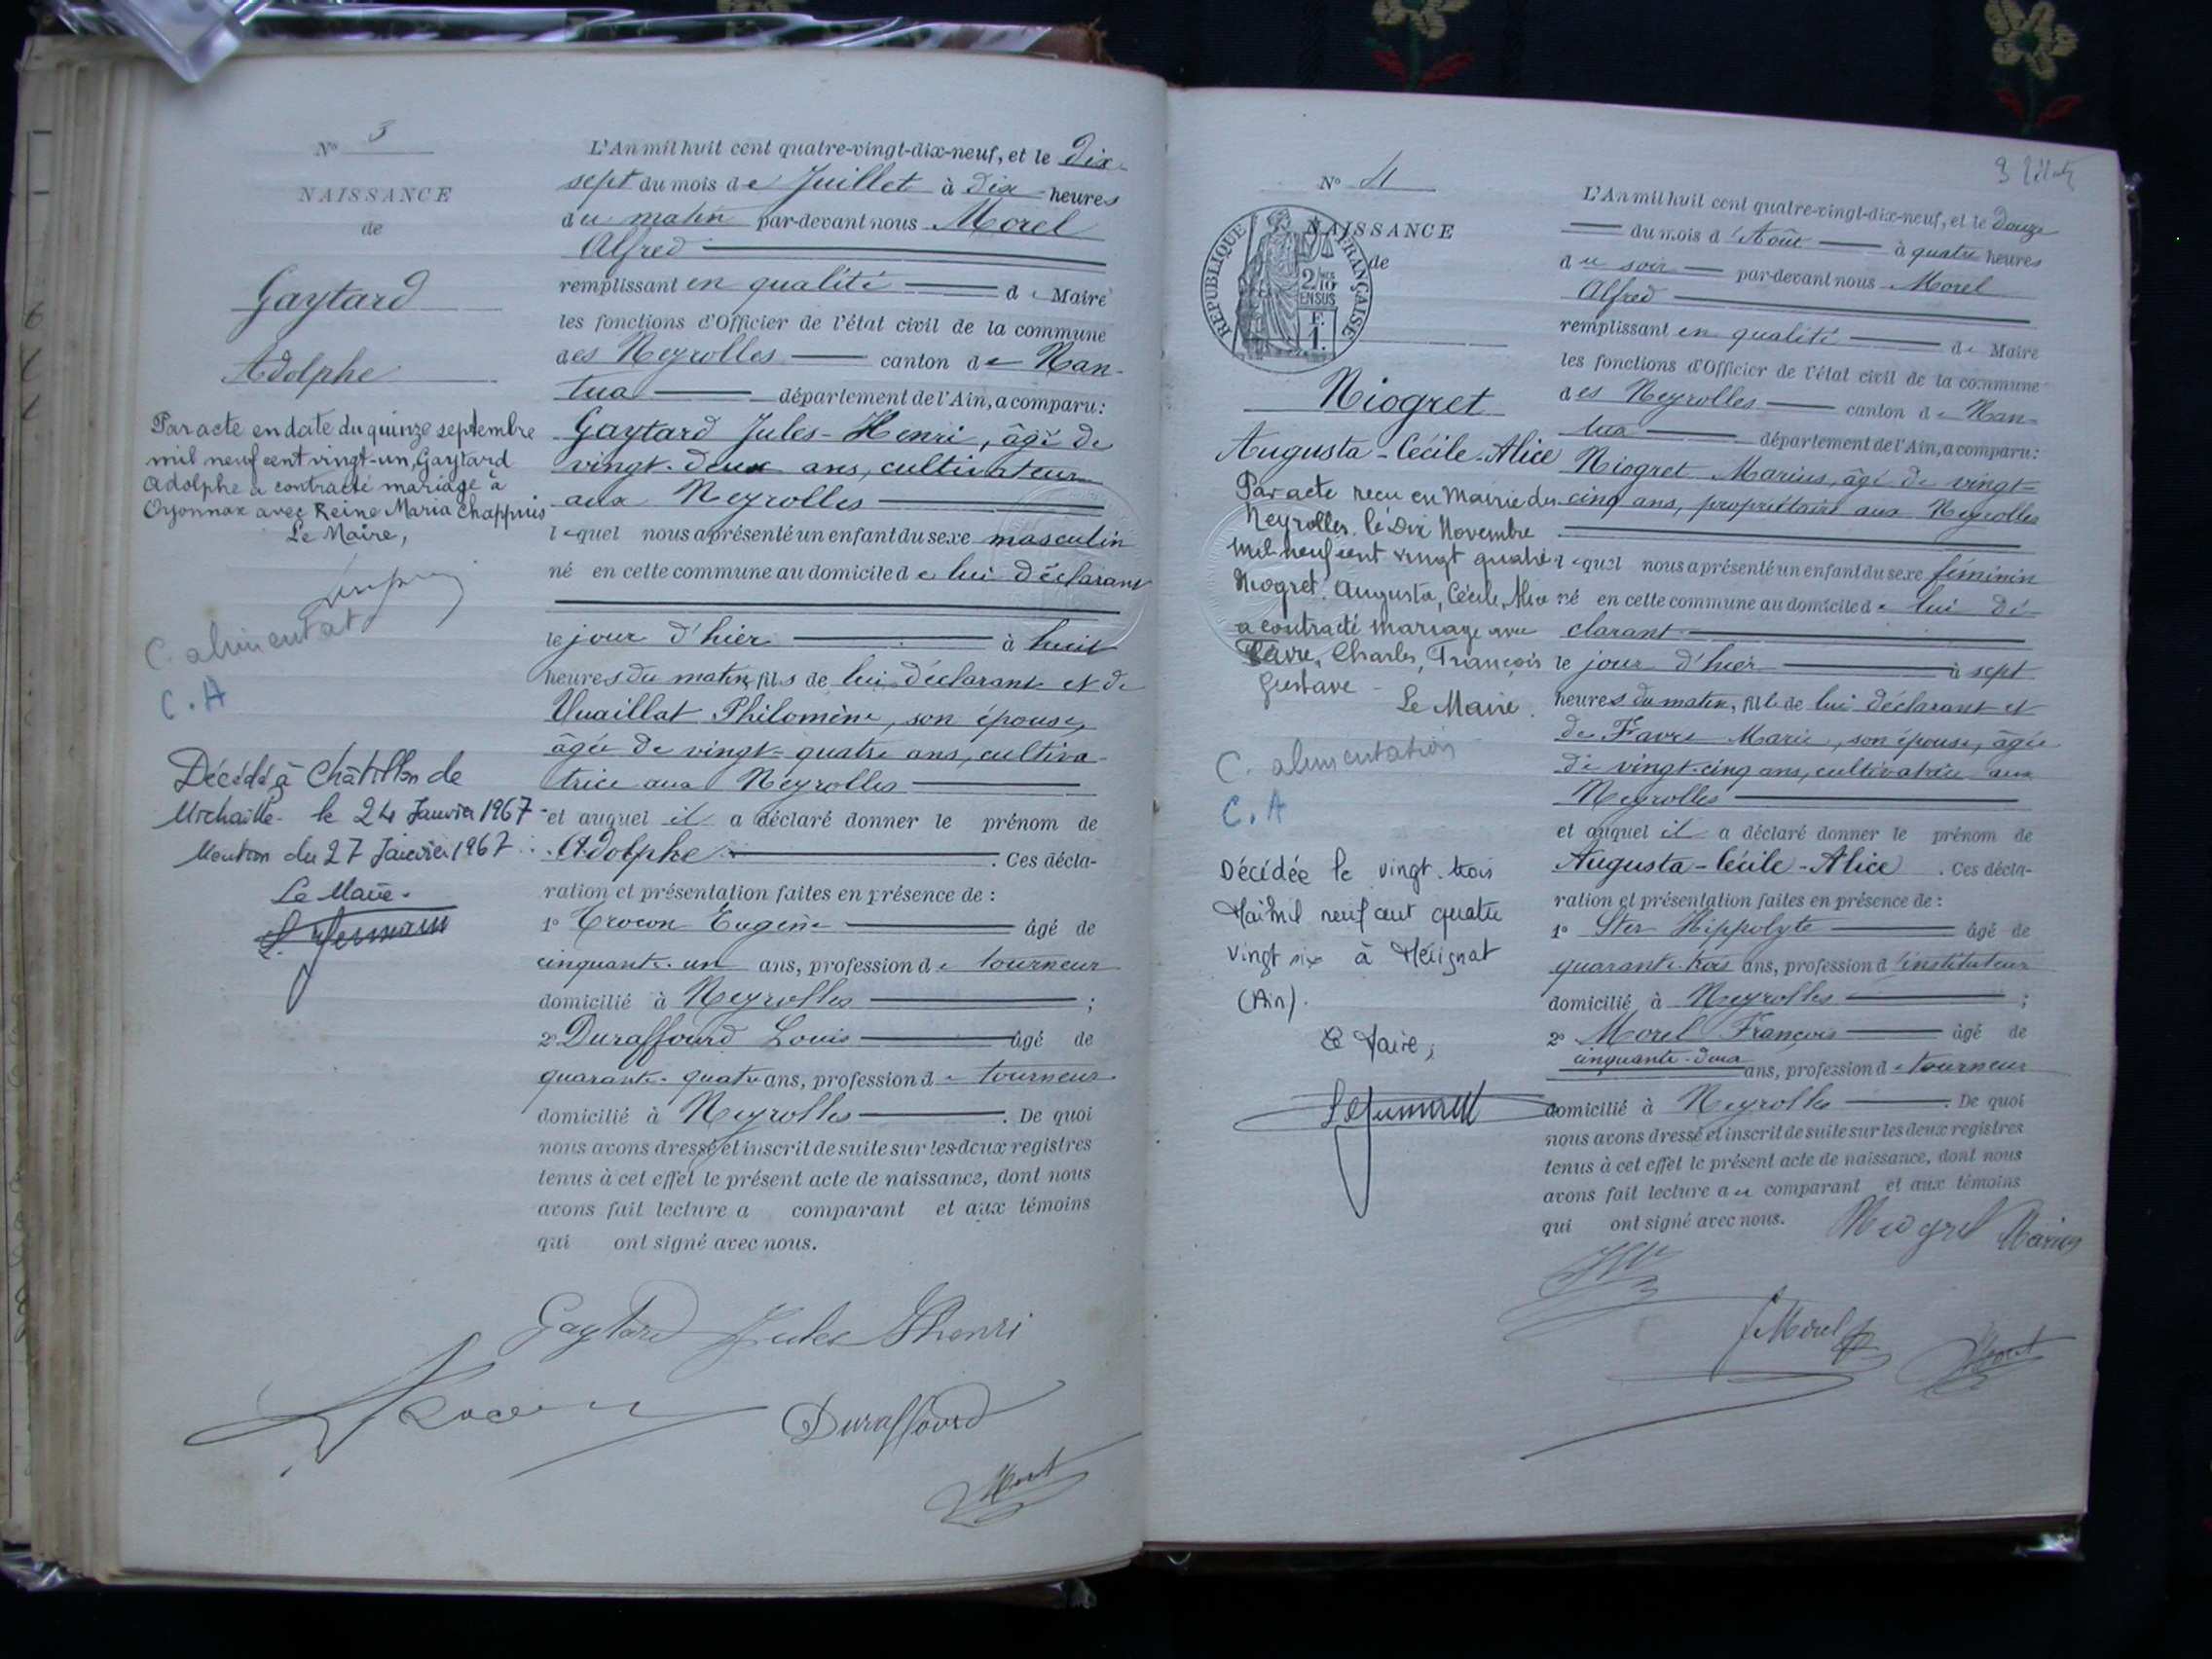 N° 3
NAISSANCE
de
Gaytard
Adolphe
Par acte en date du quinze septembre
mil neuf cent vingt-un, Gaytard
Adolphe a contracté mariage à
Oyonnax avec Reine Maria Chappuis
Le Maire,
C. alimentat
C.A
Décédé à Châtillon de
Michaille le 24 Janvier 1967
Mention du 27 Janvier 1967
Le Maire
L'An mil huit cent quatre-vingt-dix-neuf, et le dix-
sept du mois de Juillet à dix heures
du matin par-devant nous Morel
Alfred
remplissant en qualité de Maire
les fonctions d'Officier de l'état civil de la commune
des Neyrolles canton de Nan-
tua département de l'Ain, a comparu:
Gaytard Jules-Henri, âgé de
vingt-deux ans, cultivateur
aux Neyrolles
lequel nous a présenté un enfant du sexe masculin
né en cette commune au domicile de lui déclarant
le jour d'hier à huit
heures du matin, fils de lui déclarant et de
Vuaillat Philomène, son épouse,
âgée de vingt-quatre ans, cultiva-
trice aux Neyrolles
et auquel il a déclaré donner le prénom de
Adolphe. Ces décla-
ration et présentation faites en présence de:
1° Crocon Eugène âgé de
cinquante-un ans, profession de tourneur
domicilié à Neyrolles;
2° Duraffourd Louis âgé de
quarante-quatre ans, profession de tourneur
domicilié à Neyrolles. De quoi
nous avons dressé et inscrit de suite sur les deux registres
tenus à cet effet le présent acte de naissance, dont nous
avons fait lecture a comparant et aux témoins
qui ont signé avec nous.
Gaytard Jules Henri
Duraffourd
N° 4
NAISSANCE
de
REPUBLIQUE FRANÇAISE
2/10
EN SUS
F.
1.
Niogret
Augusta-Cécile-Alice
Par acte reçu en Mairie des
Neyrolles, le Dix Novembre
mil neuf cent vingt quatre
Niogret Augusta, Cécile, Alice
a contracté mariage avec
Favre, Charles, François
Gustave
Le Maire.
C. alimentation
C.A
Décédée le vingt-trois
Mai mil neuf cent quatre
vingt six à Mérignat
(Ain).
Le Maire,
L'An mil huit cent quatre-vingt-dix-neuf, et le douze
du mois d'Août à quatre heures
du soir par-devant nous Morel
Alfred
remplissant en qualité de Maire
les fonctions d'Officier de l'état civil de la commune
des Neyrolles canton de Nan-
tua département de l'Ain, a comparu:
Niogret Marius, âgé de vingt-
cinq ans, propriétaire aux Neyrolles
lequel nous a présenté un enfant du sexe féminin
né en cette commune au domicile de lui dé-
clarant
le jour d'hier à sept
heures du matin, fille de lui déclarant et
de Favre Marie, son épouse, âgée
de vingt-cinq ans, cultivatrice aux
Neyrolles
et auquel il a déclaré donner le prénom de
Augusta-Cécile-Alice. Ces décla-
ration et présentation faites en présence de:
1° Ster Hippolyte âgé de
quarante-trois ans, profession d'instituteur
domicilié à Neyrolles;
2° Morel François âgé de
cinquante-deux ans, profession de tourneur
domicilié à Neyrolles. De quoi
nous avons dressé et inscrit de suite sur les deux registres
tenus à cet effet le présent acte de naissance, dont nous
avons fait lecture au comparant et aux témoins
qui ont signé avec nous.
Niogret Marius
F Morel